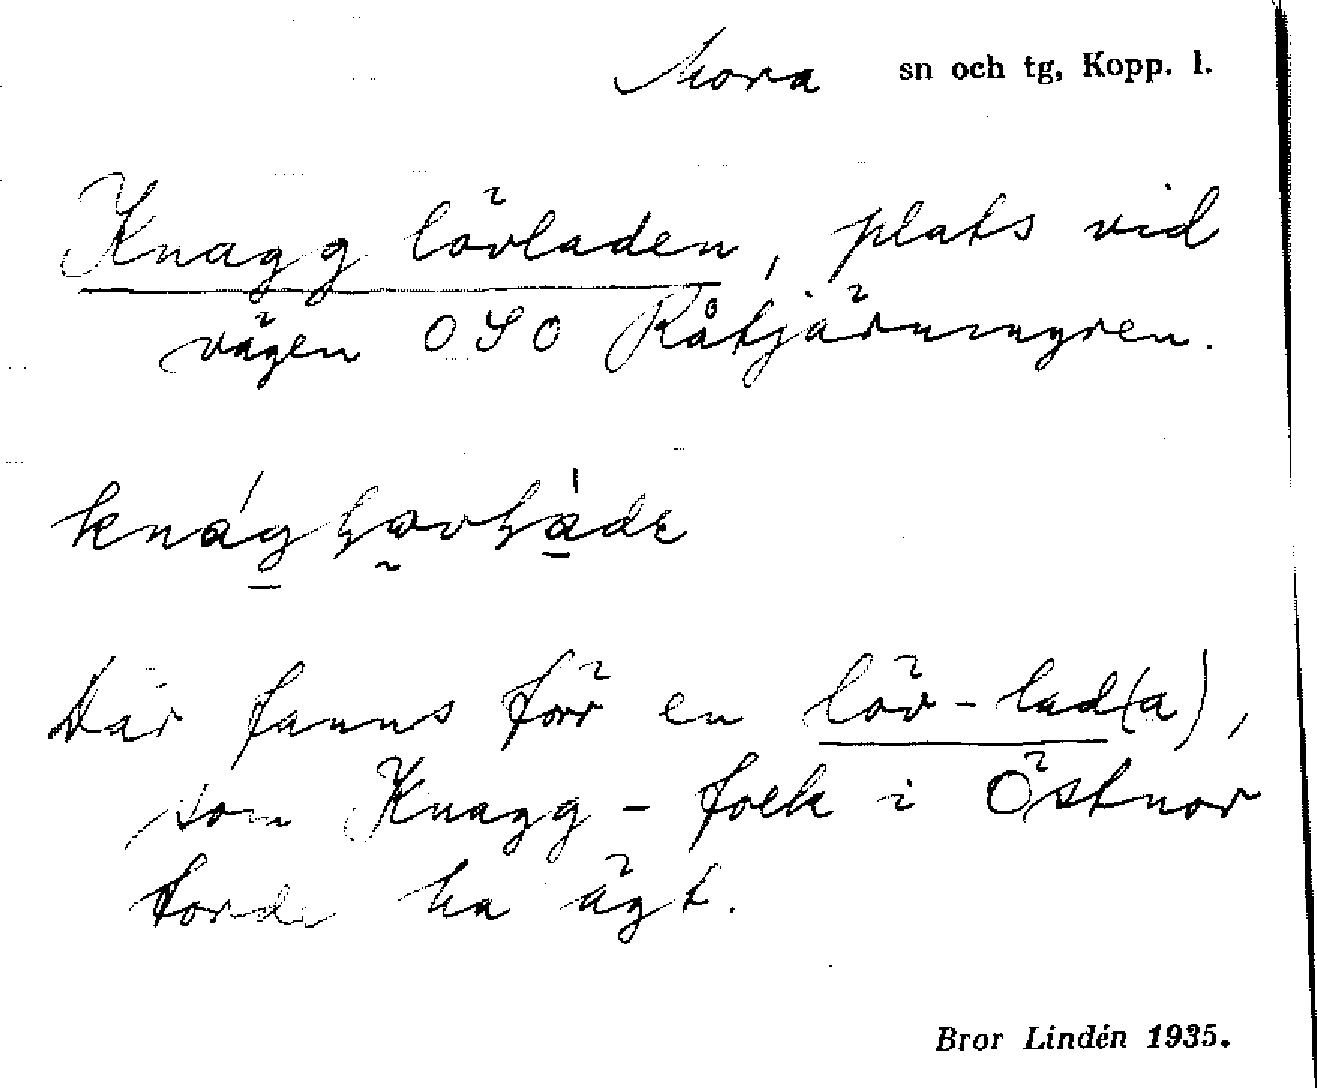 Mora sn och tg, Kopp. l.
Knagg lövladen, plats vid
vägen OSO Råtjärnmyren.
Där fanns förr en löv-lad(a),
som Knagg-folk i Östnor
torde ha ägt.
Bror Lindén 1935.